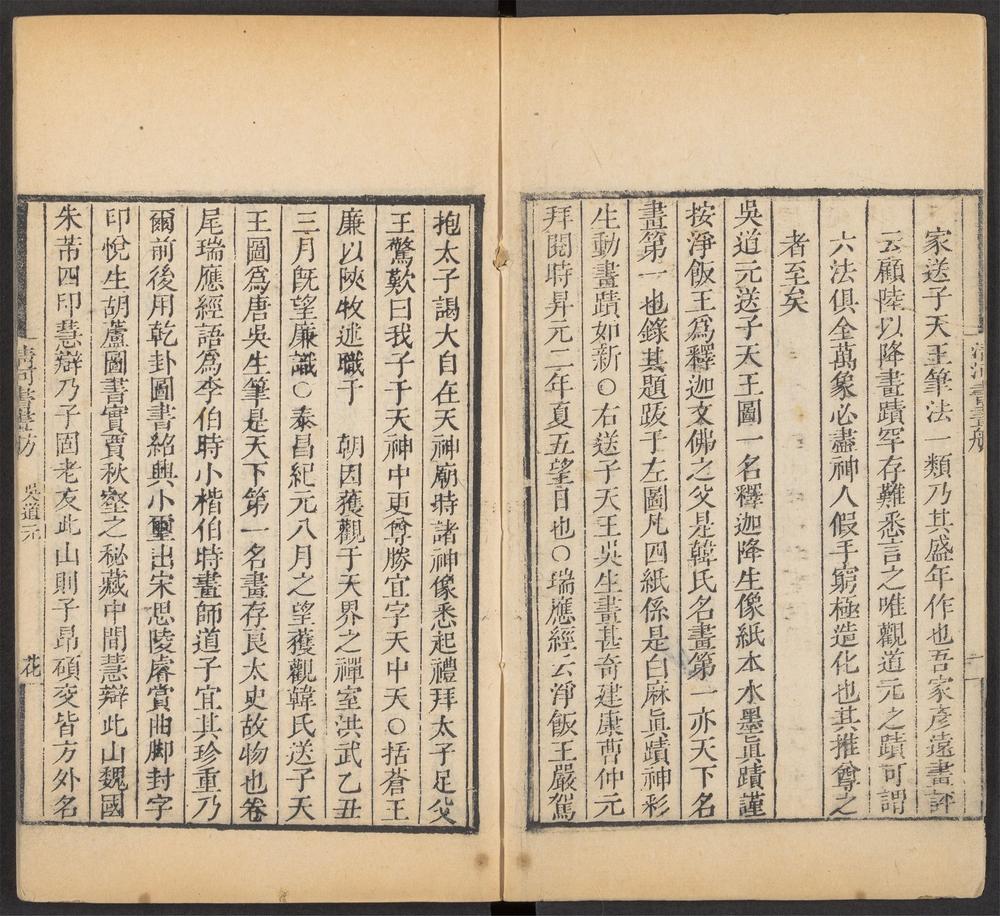 家送子天王筆法一類乃其盛年作也吾家彥遠畫評
云顧陸以降畫蹟罕存難悉言之唯觀道元之蹟可謂
六法俱全萬象必盡神人假手窮極造化也其推尊之
者至矣
吳道元送子天王圖一名釋迦降生像紙本水墨眞蹟謹
按淨飯王爲釋迦文佛之父是韓氏名畫第一亦天下名
畫第一也錄其題跋于左圖凡四紙係是白麻眞蹟神彩
生動畫蹟如新○右送子天王吳生畫甚奇建康曹仲元
拜閱時昇元二年夏五望日也○瑞應經云淨飯王嚴駕
抱太子謁大自在天神廟時諸神像悉起禮拜太子足父
王驚歎曰我子于天神中更尊勝宜字天中天○括蒼王
廉以陝牧述職于　朝因獲觀于天界之禪室洪武乙丑
三月旣望廉識○泰昌紀元八月之望獲觀韓氏送子天
王圖爲唐吳生筆是天下第一名畫存良太史故物也卷
尾瑞應經語爲李伯時小楷伯時畫師道子宜其珍重乃
爾前後用乾卦圖書紹興小璽出宋思陵睿賞曲脚封字
印悅生胡蘆圖書實賈秋壑之秘藏中間慧辯此山魏國
朱芾四印慧辯乃子固老友此山則子昂碩交皆方外名
清河書畫舫
吳道元
花